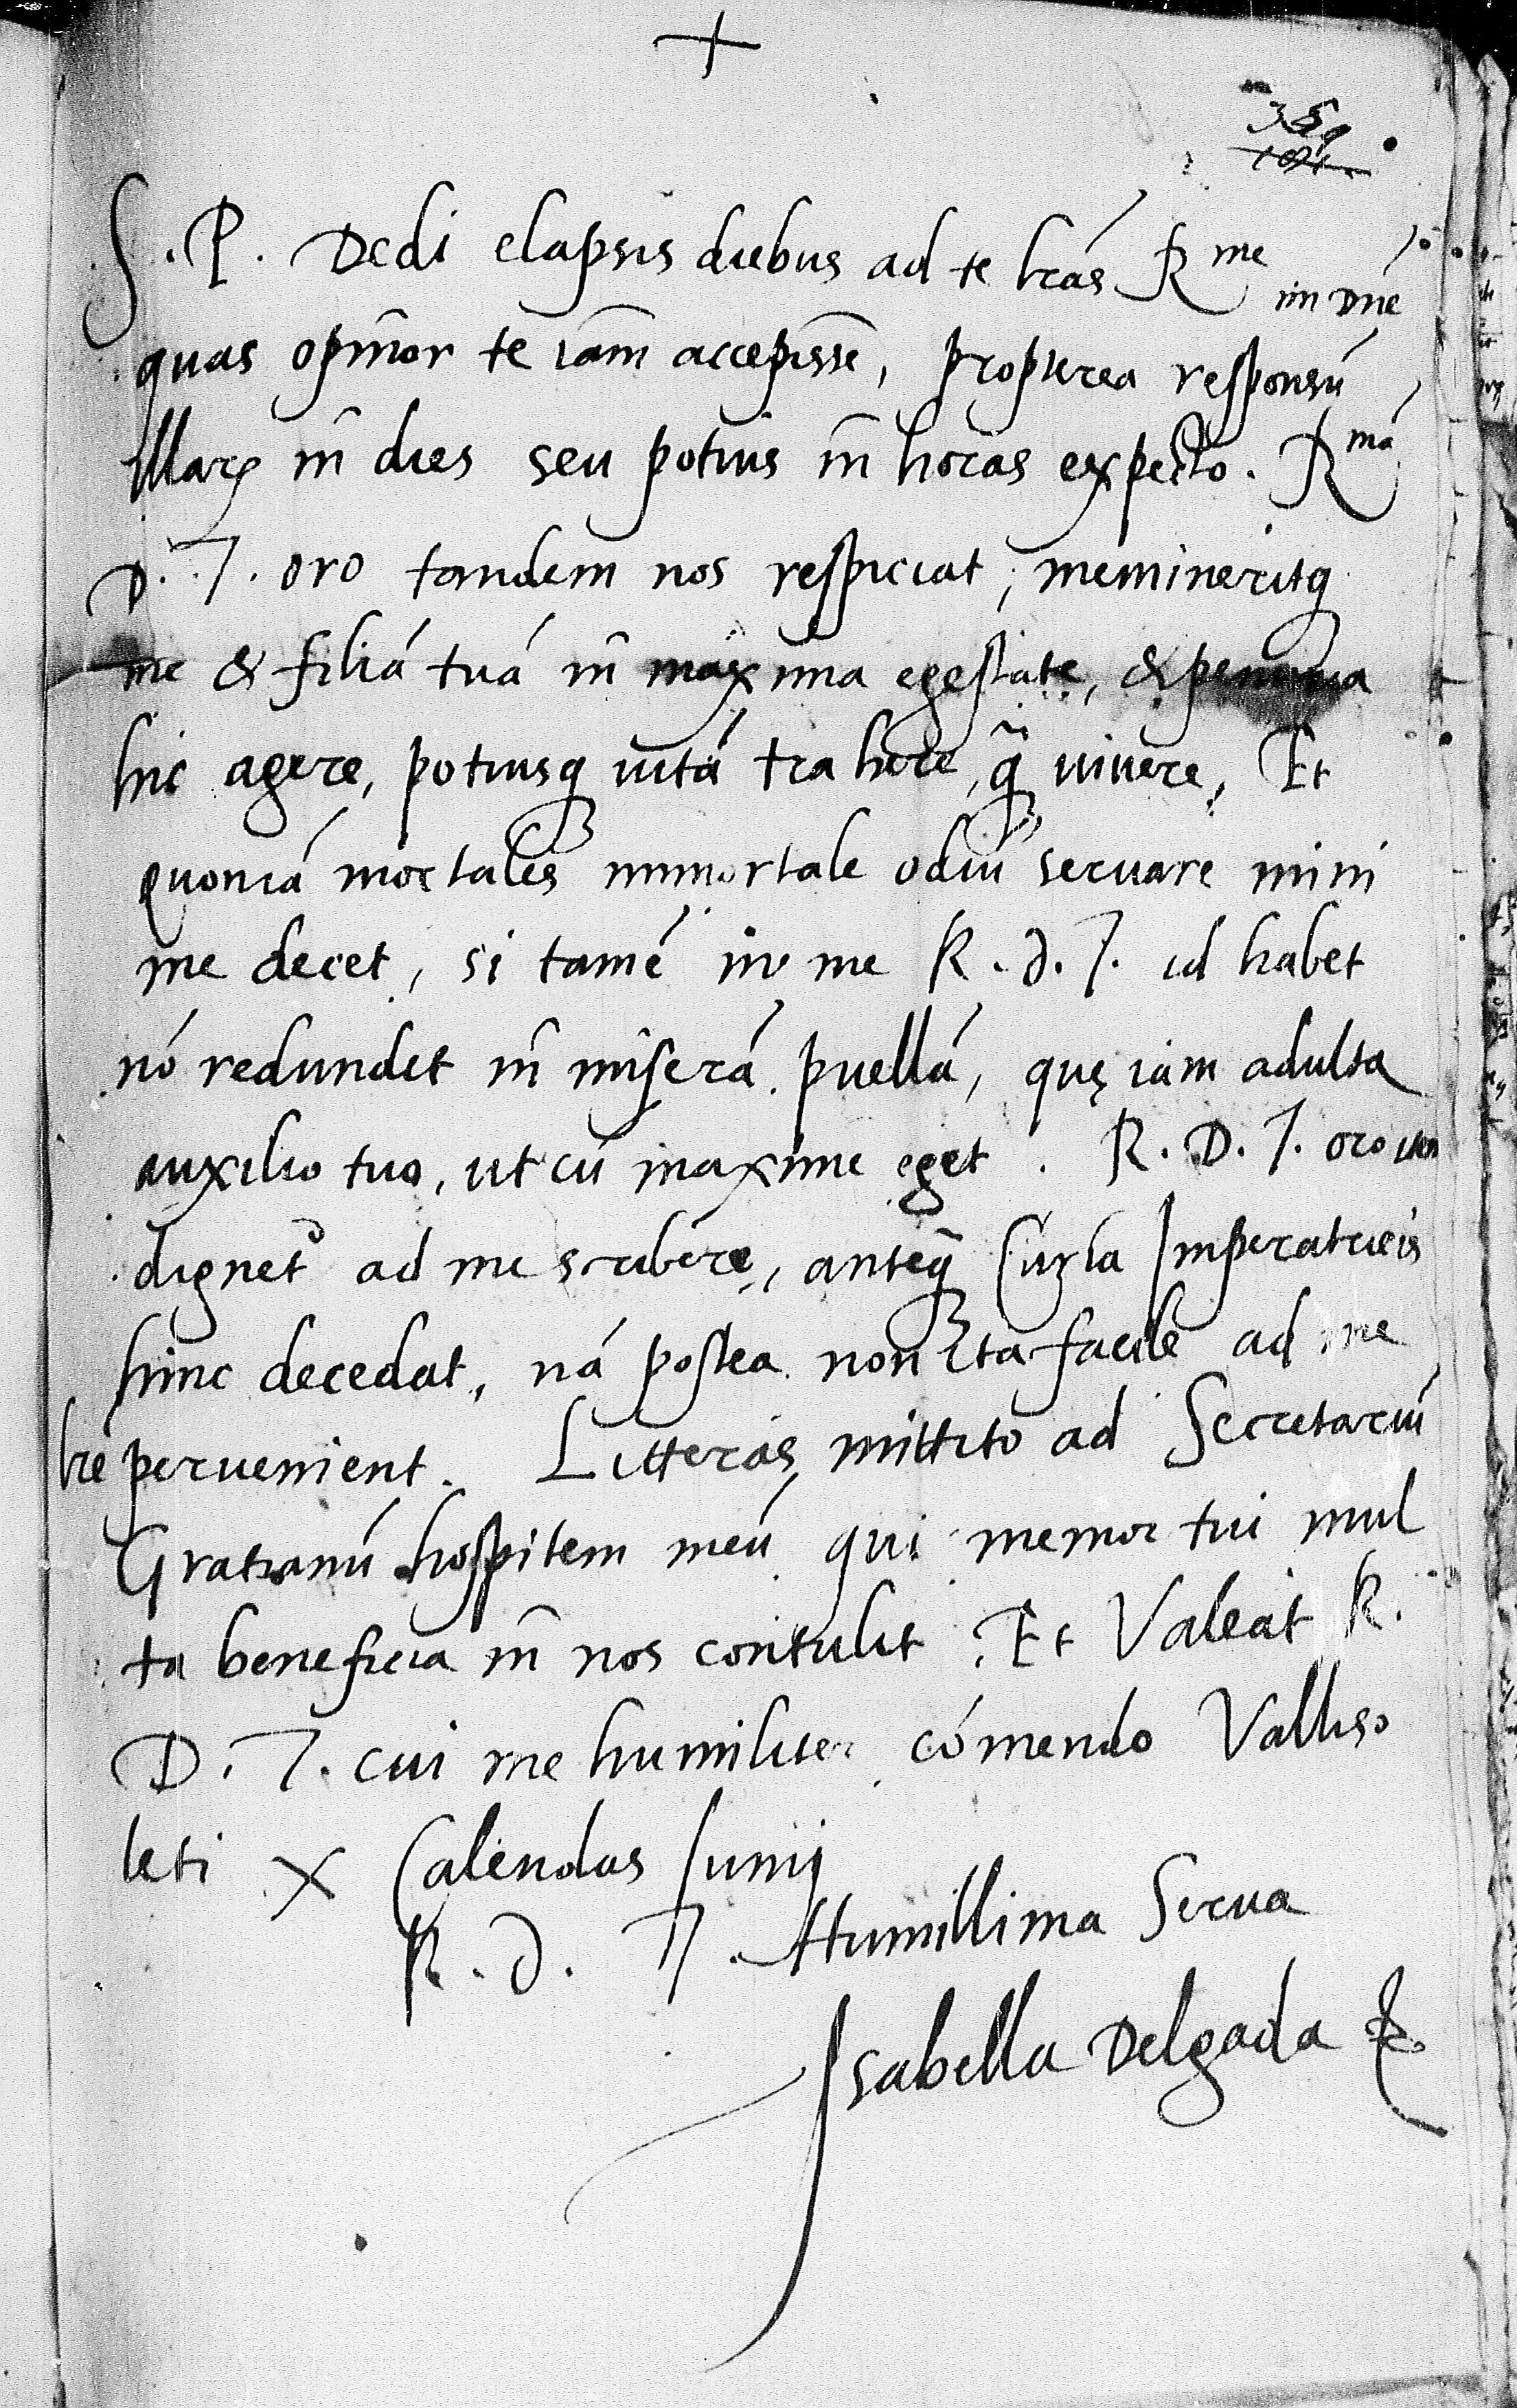 +
S. P. Dedi elapsis diebus ad te lr̃as R^me mi Dñe
quas opinor te iam accepisse, propterea responsũ
illaꝝ in dies seu potius in horas expecto. R^mã
D. T. oro tandem nos respiciat, memineritqꝫ
me & filiã tuã in maxima egestate, & penuria
hic agere, potiusqꝫ uitã trahere, q̃ȝ uiuere, Et
quoniã mortales immortale odiũ seruare mini
me decet, si tamẽ in me R. d. T. id habet
nõ redundet in miserã puellã, quę iam adulta
auxilio tuo, ut cũ maxime eget. R. D. T. oro
dignet᷒ ad me scribere, anteq̃ȝ Curia Imperatricis
hinc decedat, nã postea non ita facile ad me
lr̃e peruenient. Litteras mittito ad Secretariũ
Gratianũ hospitem meũ qui memor tui mul
ta beneficia in nos contulit. Et Valeat R.
D. T. cui me humiliter cõmendo Valliso
leti X Calendas Iunij
R. d. T. Humillima Serua
Isabella Delgada